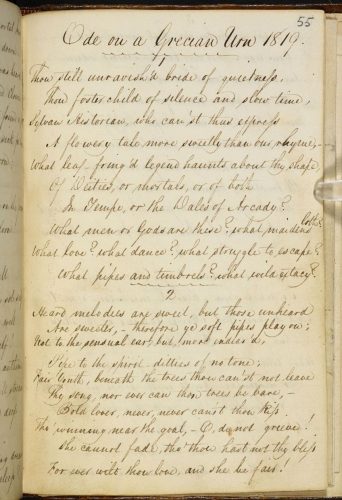 55
Ode on a Grecian Urn 1819.
1
Thou still unravish'd bride of quietness,
Thou foster child of silence and slow time,
Sylvan Historian, who can'st thus express
A flowery tale more sweetly than our rhyme,—
What leaf-fring'd legend haunts about thy shape
Of Deities, or mortals, or of both
In Tempe, or the Dales of Arcady?
What men or Gods are these? what maidens loth?
What love? what dance? what struggle to escape?
What pipes and timbrels? what wild extacy?
2
Heard melodies are sweet, but those unheard
Are sweeter,— therefore ye soft pipes play on;
Not to the sensual ear; but, more endear'd,
Pipe to the spirit—ditties of no tone;
Fair Youth, beneath the trees thou can'st not leave
Thy song, nor ever can those trees be bare,—
Bold lover, never, never can'st thou kiss
Tho' winning near the goal,— O, do not grieve!
She cannot fade, tho' thou hast not thy bliss
For ever wilt thou love, and she be fair!